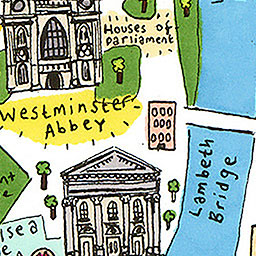 Houses of
Parliament
Westminster
Abbey
Lambeth
Bridge